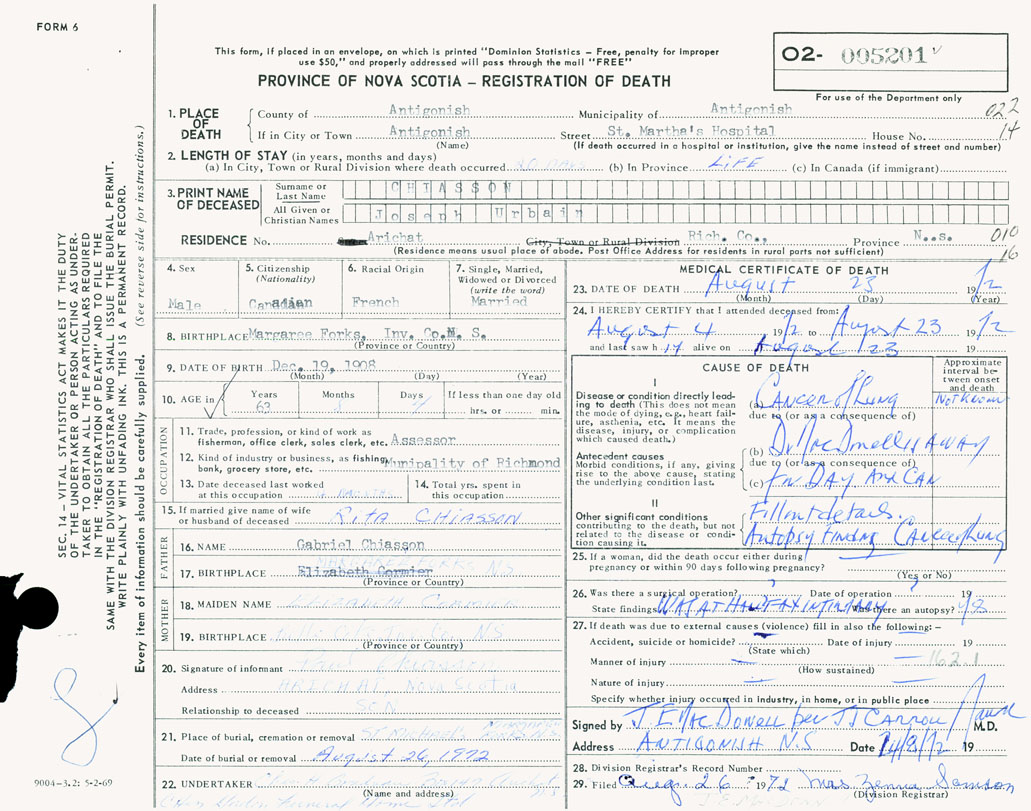 FORM 6
This form, if placed in an envelope, on which is printed "Dominion Statistics – Free, penalty for improper
use $50," and properly addressed will pass through the mail "FREE"
PROVINCE OF NOVA SCOTIA – REGISTRATION OF DEATH
02- 005201
For use of the Department only
022
14
1. PLACE OF DEATH
County of Antigonish Municipality of Antigonish
If in City or Town Antigonish Street St. Martha's Hospital House No.
(Name) (If death occurred in a hospital or institution, give the name instead of street and number)
2. LENGTH OF STAY (in years, months and days)
(a) In City, Town or Rural Division where death occurred 20 DAYS (b) In Province LIFE (c) In Canada (if immigrant)
3. PRINT NAME OF DECEASED
Surname or Last Name CHIASSON
All Given or Christian Names Joseph Urbain
RESIDENCE No. Arichat City, Town or Rural Division Rich. Co., Province N..s.
(Residence means usual place of abode. Post Office Address for residents in rural parts not sufficient)
010
16
4. Sex
Male
5. Citizenship (Nationality)
Canadian
6. Racial Origin
French
7. Single, Married, Widowed or Divorced (write the word)
Married
8. BIRTHPLACE Margaree Forks, Inv. Co.N. S.
(Province or Country)
9. DATE OF BIRTH Dec. 19, 1908
(Month) (Day) (Year)
10. AGE in Years Months Days If less than one day old
63 8 4 hrs. or min.
OCCUPATION
11. Trade, profession, or kind of work as
fisherman, office clerk, sales clerk, etc. Assessor
12. Kind of industry or business, as fishing,
bank, grocery store, etc. Munipality of Richmond
13. Date deceased last worked
at this occupation MONTHS
14. Total yrs. spent in
this occupation
15. If married give name of wife
or husband of deceased RITA CHIASSON
FATHER
16. NAME Gabriel Chiasson
17. BIRTHPLACE Elizabeth Cormier FORKS N S
(Province or Country)
MOTHER
18. MAIDEN NAME ELIZABETH CORMIER
19. BIRTHPLACE N S
(Province or Country)
20. Signature of informant Chiasson
Address ARICHAT, Nova Scotia
Relationship to deceased SON
21. Place of burial, cremation or removal
Date of burial or removal August 26, 1972
22. UNDERTAKER
(Name and address)
Funeral Home Ltd
MEDICAL CERTIFICATE OF DEATH
23. DATE OF DEATH August 23 1972
(Month) (Day) (Year)
24. I HEREBY CERTIFY that I attended deceased from:
August 4 1972 to August 23 1972
and last saw him alive on August 23 19
CAUSE OF DEATH
Approximate interval between onset and death
I
Disease or condition directly leading to death (This does not mean the mode of dying, e.g., heart failure, asthenia, etc. It means the disease, injury, or complication which caused death.)
(a) Cancer of Lung NOT KNOWN
due to (or as a consequence of)
Antecedent causes
Morbid conditions, if any, giving rise to the above cause, stating the underlying condition last.
(b) Dr MacDonell is AWAY
due to (or as a consequence of)
(c) for DAY AND CAN
II
Other significant conditions
contributing to the death, but not related to the disease or condition causing it.
Fill out details.
Autopsy Finding Cancer of Lung
25. If a woman, did the death occur either during
pregnancy or within 90 days following pregnancy?
(Yes or No)
26. Was there a surgical operation? ? Date of operation ? 19
State findings WAS AT HALIFAX INFIRMARY Was there an autopsy? Yes
27. If death was due to external causes (violence) fill in also the following: –
Accident, suicide or homicide? Date of injury 19
(State which)
Manner of injury 162.1
(How sustained)
Nature of injury
Specify whether injury occurred in industry, in home, or in public place
Signed by J. E. MacDonell per J J CARROLL M.D.
Address ANTIGONISH N.S Date 24/8/72 19
28. Division Registrar's Record Number
29. Filed Aug. 26 1972 Mrs Samson
(Division Registrar)
SEC. 14 – VITAL STATISTICS ACT MAKES IT THE DUTY
OF THE UNDERTAKER OR PERSON ACTING AS UNDER-
TAKER TO OBTAIN ALL THE PARTICULARS REQUIRED
IN THE "REGISTRATION OF DEATH" AND TO FILE THE
SAME WITH THE DIVISION REGISTRAR WHO SHALL ISSUE THE BURIAL PERMIT.
WRITE PLAINLY WITH UNFADING INK. THIS IS A PERMANENT RECORD.
Every item of information should be carefully supplied. (See reverse side for instructions.)
9004–3.2: 5-2-69